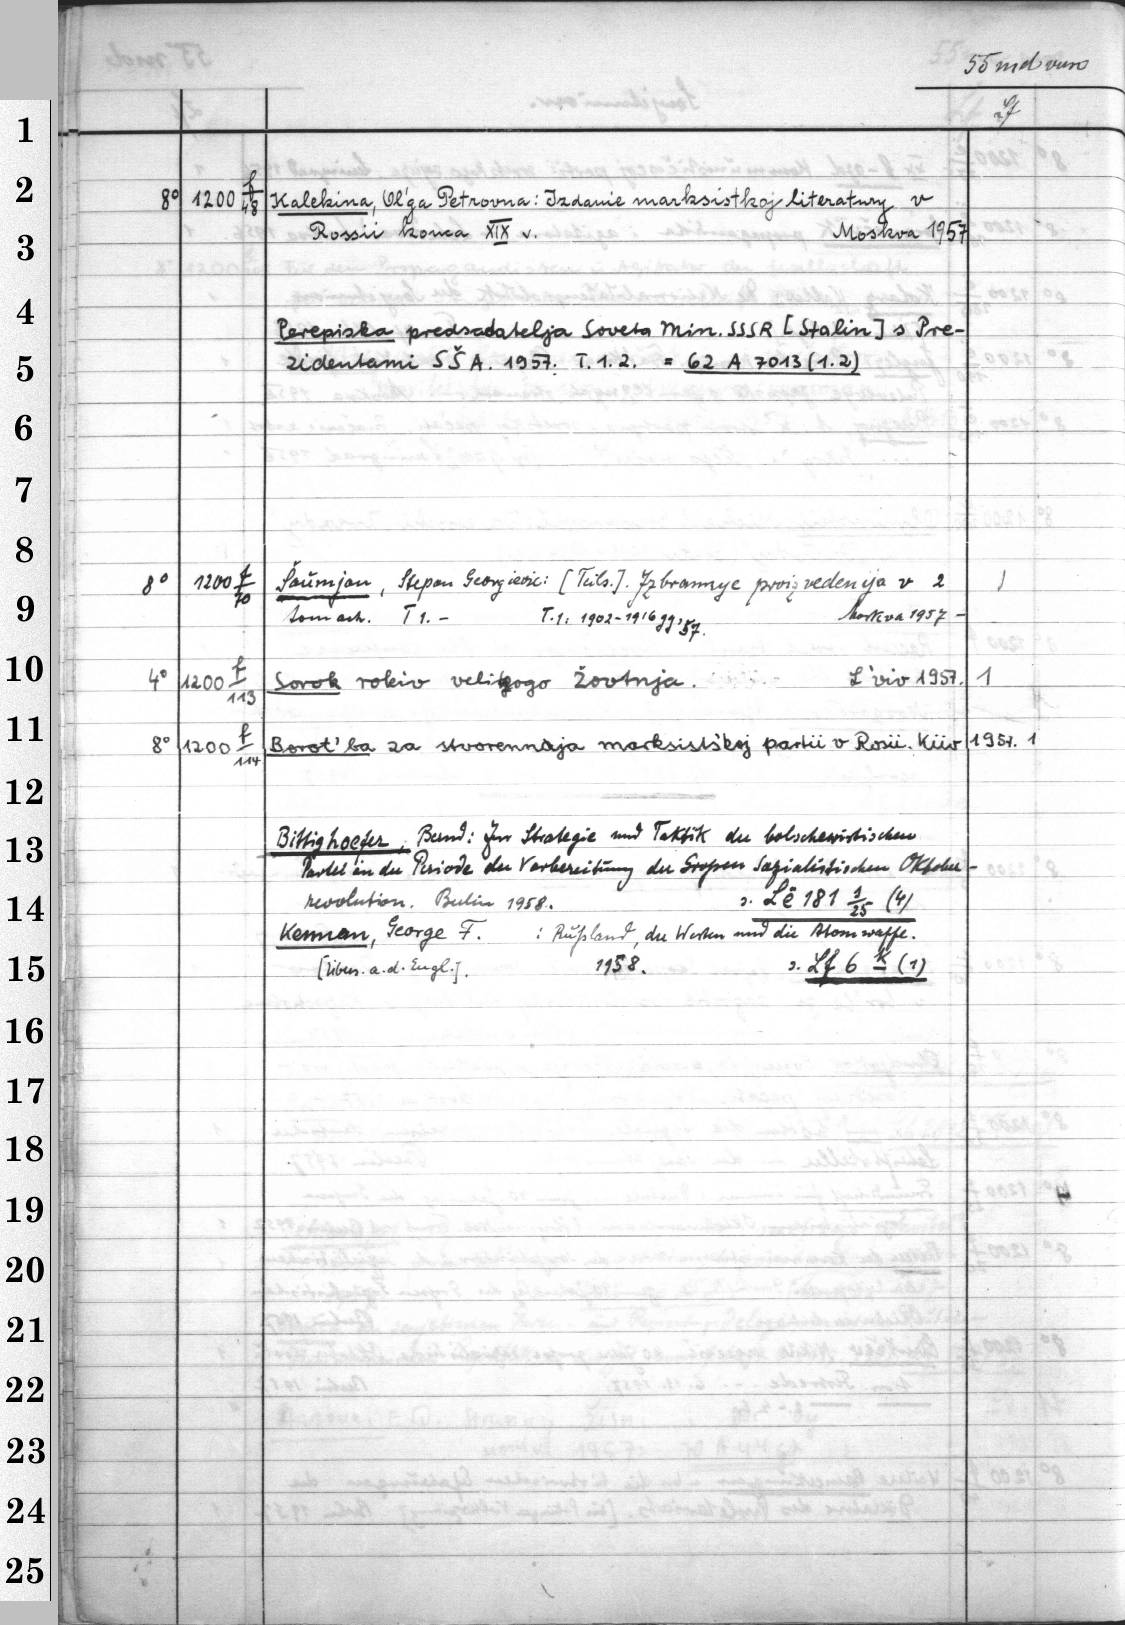 55 md verso
Zf
1
2
8° 1200 f/48 Kalekina, Ol'ga Petrovna: Izdanie marksistkoj literatury v
3 Rossii konca XIX v. Moskva 1957
4 Perepiska predsedatelja Soveta Min. SSSR [Stalin] s Pre-
5 zidentami SŠA. 1957. T.1.2. = 62 A 7013 (1.2)
6
7
8
8° 1200 f/70 Šaumjan, Stepan Georgievič: [Teils.]. Izbrannye proizvedenija v 2 1
9 tomach. T 1. – T.1: 1902-1916 gg '57. Moskva 1957 –
10 4° 1200 f/113 Sorok rokiv velikogo žovtnja. L'viv 1957. 1
11 8° 1200 f/114 Borot'ba za stvorennja marksists'koj partii v Rosii. Kiiv 1957. 1
12
13 Bittighoefer, Bernd: Zur Strategie und Taktik der bolschewistischen
Partei in der Periode der Vorbereitung der Großen Sozialistischen Oktober-
14 revolution. Berlin 1958. s. Lë 181 1/25 (4)
Kennan, George F. : Rußland, der Westen und die Atomwaffe.
15 [Übers. a.d. Engl.]. 1958. s. Lf 6 K (1)
16
17
18
19
20
21
22
23
24
25